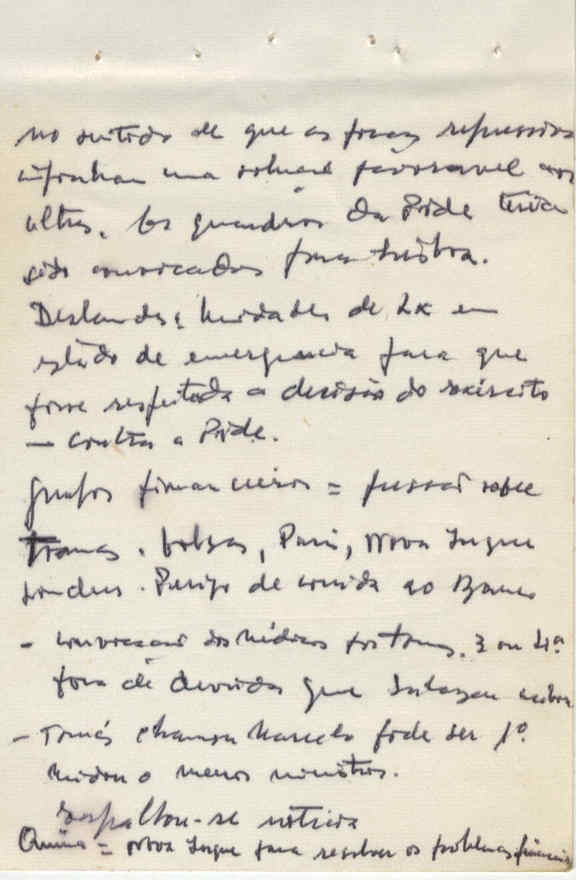 no sentido de que as forças repressivas
uma solução favorável aos
ultras. Os quadros da Pide teriam
sido convocados para Lisboa.
Deslandes: Unidades de Lx em
estado de emergencia para que
fosse respeitada a decisão do exército
— contra a Pide.
Grupos financeiros = pressão sobre
Tomás. bolsas, Paris, Nova Iorque
Londres. Perigo de corrida ao Banco
- convocação dos médicos por Tomás. 3 ou 4ª
fora de duvida que Salazar
- Tomás chamou Marcelo pode ser 1º.
Mudou o menos ministros.
Espalhou-se noticia
= Nova Iorque para resolver os problemas financeiros